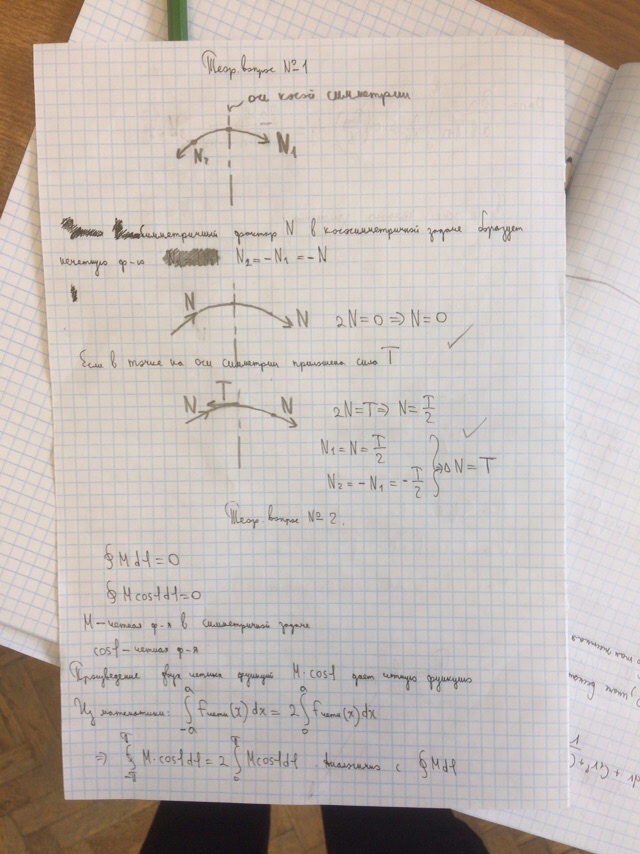 Теор. вопрос №1
оси косой симметрии
N₂ N₁
симметричный фактор N в кососимметричной задаче образует
нечетную ф-ю N₂ = -N₁ = -N
N N 2N=0 ⇒ N=0
Если в точке на оси симметрии приложена сила T
N T N 2N=T ⇒ N = T/2
N₁ = N = T/2
N₂ = -N₁ = -T/2
⇒ ΔN = T
Теор. вопрос №2.
∮ M dφ = 0
∮ M cosφ dφ = 0
M – четная ф-я в симметричной задаче
cosφ – четная ф-я
Произведение двух четных функций M·cosφ дает четную функцию
Из математики: ∫₋ₐᵃ fчетн(x)dx = 2∫₀ᵃ fчетн(x)dx
⇒ ∫ M·cosφ dφ = 2∫ M cosφ dφ Аналогично с ∮ M dφ